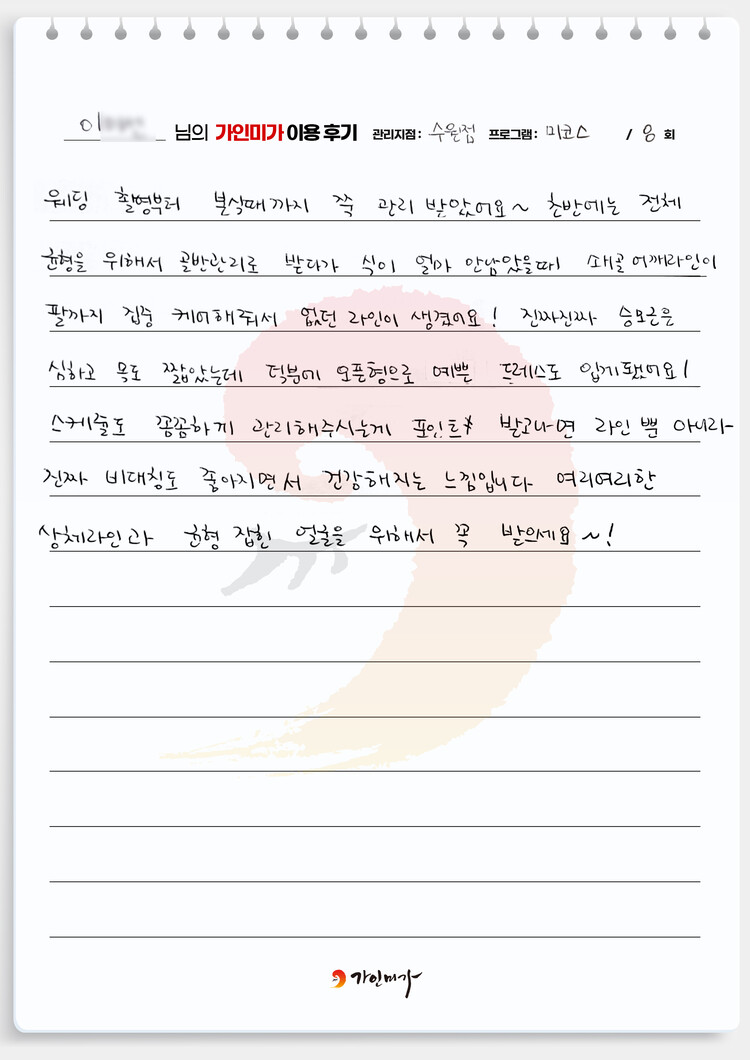 이 님의 가인미가 이용 후기 관리지점 : 수원점 프로그램 : 미코스 / 8 회
웨딩 촬영부터 본식때까지 쭉 관리 받았어요~ 초반에는 전체
균형을 위해서 골반관리로 받다가 식이 얼마 안남았을때 쇄골 어깨라인이
팔까지 집중 케어해줘서 없던 라인이 생겼어요! 진짜진짜 승모근은
심하고 목도 짧았는데 덕분에 오픈형으로 예쁜 드레스도 입게됐어요!
스케줄도 꼼꼼하게 관리해주시는게 포인트* 받고나면 라인 뿐 아니라
진짜 비대칭도 좋아지면서 건강해지는 느낌입니다 여리여리한
상체라인과 균형 잡힌 얼굴을 위해서 꼭 받으세요~!
가인미가